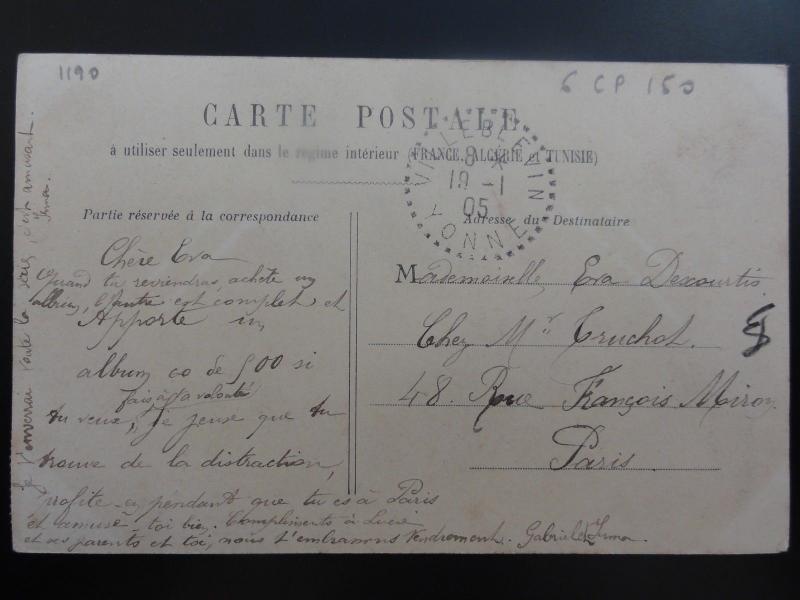 1190
6 CP 150
CARTE POSTALE
à utiliser seulement dans le régime intérieur (FRANCE, ALGÉRIE et TUNISIE)
VILLEBLEVIN
8
19 -1
05
YONNE
Partie réservée à la correspondance
Adresse du Destinataire
Chère Eva
Quand tu reviendras, achète un
album, l'autre est complet et
Apporte un
album co de 500 si
fais à ta volonté
tu veux, Je pense que tu
trouve de la distraction,
profite-en pendant que tu es à Paris
et amuse-toi bien. Compliments à Lucie
et ses parents et toi, nous t'embrassons tendrement. Gabriel et Irma.
Je t'enverrai toute la série, c'est amusant.
Irma.
Mademoiselle Eva Descourtis
Chez Mr Truchot.
48. Rue François Miron
Paris